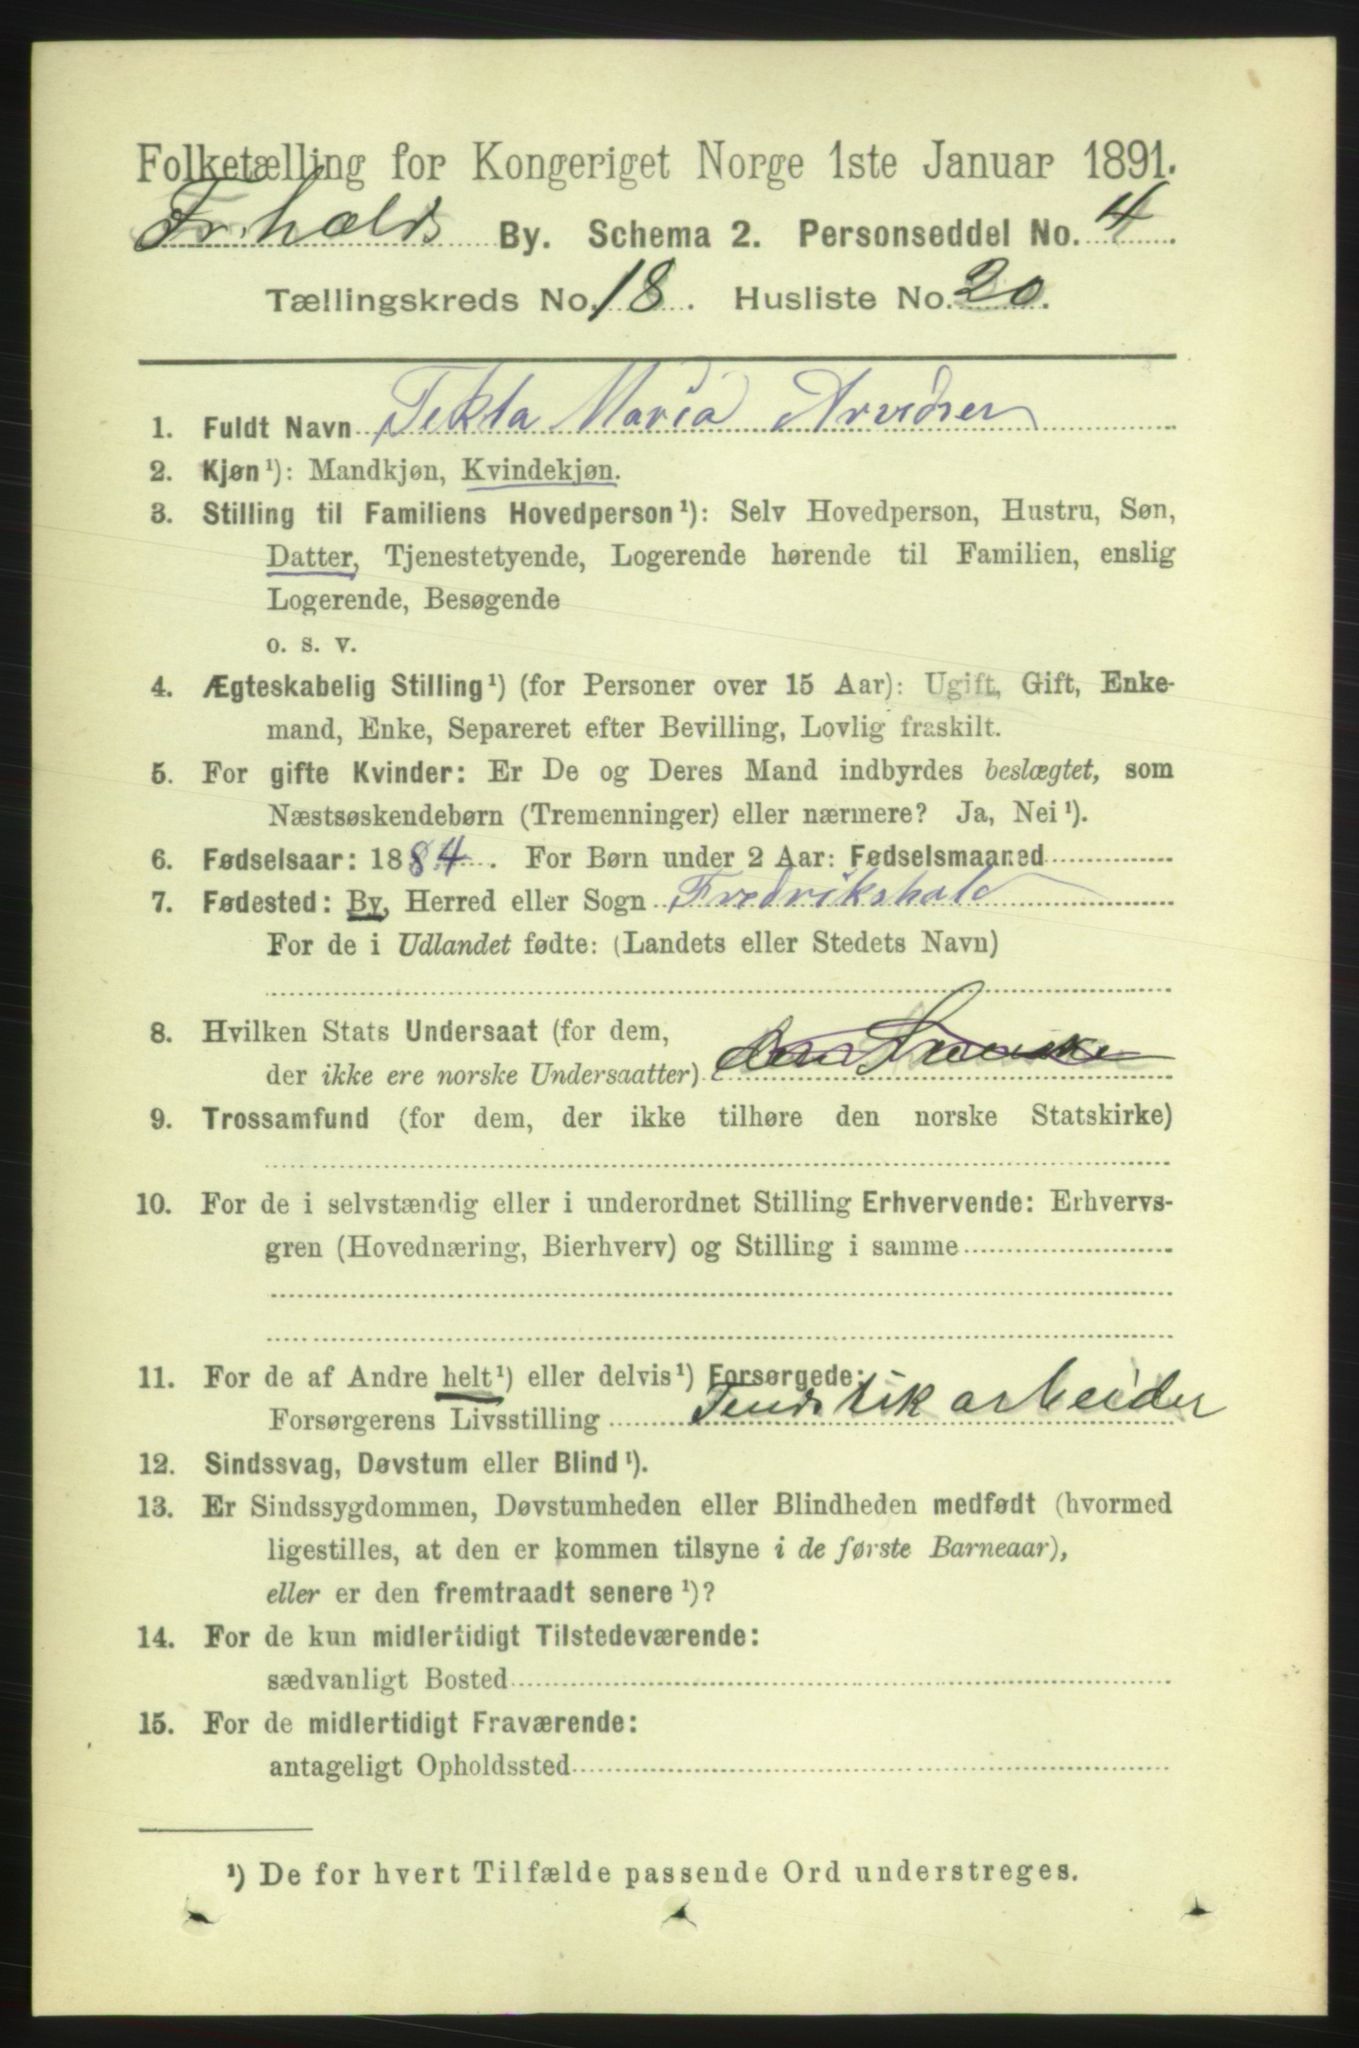 Folketælling for Kongeriget Norge 1ste Januar 1891.
Fr.halds By. Schema 2. Personseddel No. 4.
Tællingskreds No. 18. Husliste No. 20.
1. Fuldt Navn Tekla Maria Arvidsen
2. Kjøn¹): Mandkjøn, Kvindekjøn.
3. Stilling til Familiens Hovedperson¹): Selv Hovedperson, Hustru, Søn,
Datter, Tjenestetyende, Logerende hørende til Familien, enslig
Logerende, Besøgende
o. s. v.
4. Ægteskabelig Stilling¹) (for Personer over 15 Aar): Ugift, Gift, Enke-
mand, Enke, Separeret efter Bevilling, Lovlig fraskilt.
5. For gifte Kvinder: Er De og Deres Mand indbyrdes beslægtet, som
Næstsøskendebørn (Tremenninger) eller nærmere? Ja, Nei¹).
6. Fødselsaar: 1884. For Børn under 2 Aar: Fødselsmaaned
7. Fødested: By, Herred eller Sogn Fredrikshald
For de i Udlandet fødte: (Landets eller Stedets Navn)
8. Hvilken Stats Undersaat (for dem,
der ikke ere norske Undersaatter) den Svenske
9. Trossamfund (for dem, der ikke tilhøre den norske Statskirke)
10. For de i selvstændig eller i underordnet Stilling Erhvervende: Erhvervs-
gren (Hovednæring, Bierhverv) og Stilling i samme
11. For de af Andre helt¹) eller delvis¹) Forsørgede:
Forsørgerens Livsstilling Tendstikarbeider
12. Sindssvag, Døvstum eller Blind¹).
13. Er Sindssygdommen, Døvstumheden eller Blindheden medfødt (hvormed
ligestilles, at den er kommen tilsyne i de første Barneaar),
eller er den fremtraadt senere¹)?
14. For de kun midlertidigt Tilstedeværende:
sædvanligt Bosted
15. For de midlertidigt Fraværende:
antageligt Opholdssted
¹) De for hvert Tilfælde passende Ord understreges.